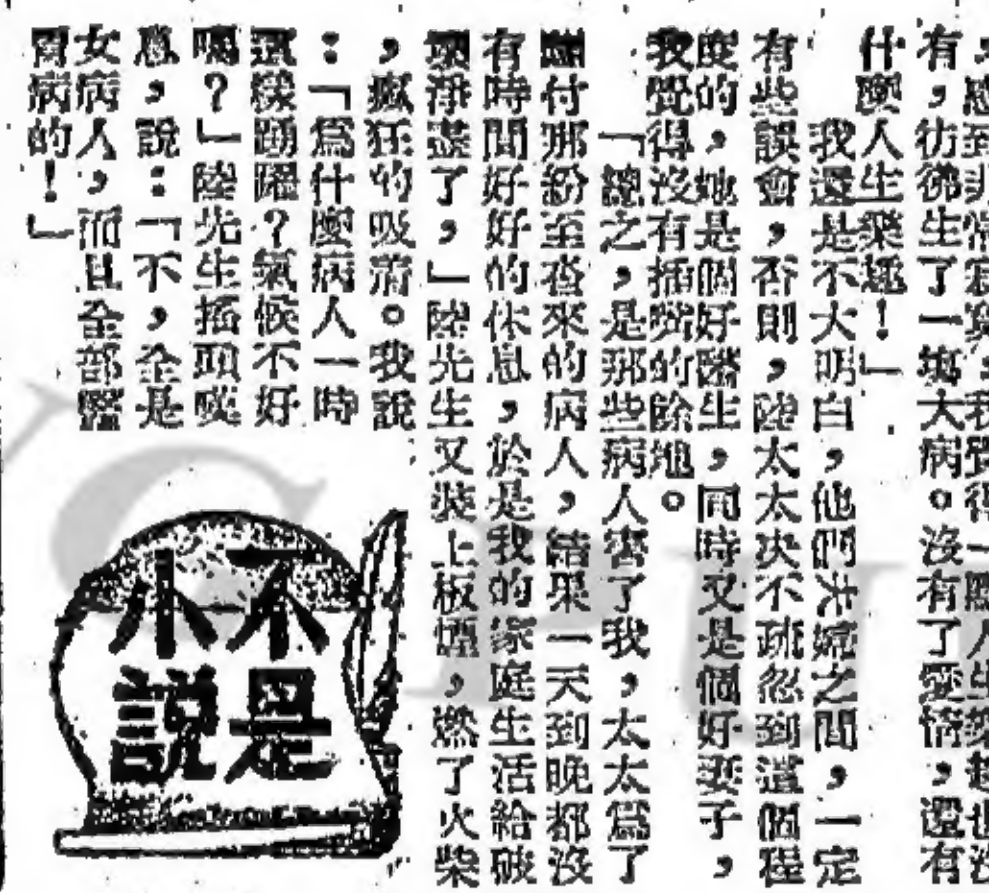 ，感到非常寂寞，我覺得一點人生樂趣也沒
有，彷彿生了一塲大病。沒有了愛情，還有
什麼人生樂趣！」
我還是不大明白，他們夫婦之間，一定
有些誤會，否則，陸太太决不疏忽到這個程
度的，她是個好醫生，同時又是個好妻子，
我覺得沒有插嘴的餘地。
「總之，是那些病人害了我，太太爲了
應付那紛至沓來的病人，結果一天到晚都沒
有時間好好的休息，於是我的家庭生活給破
壞淨盡了，」陸先生又裝上板煙，燃了火柴
，瘋狂的吸着。我說
：「爲什麼病人一時
這樣踴躍？氣候不好
嗎？」陸先生搖頭嘆
息，說：「不，全是
女病人，而且全部醫
胃病的！」
不是
小說